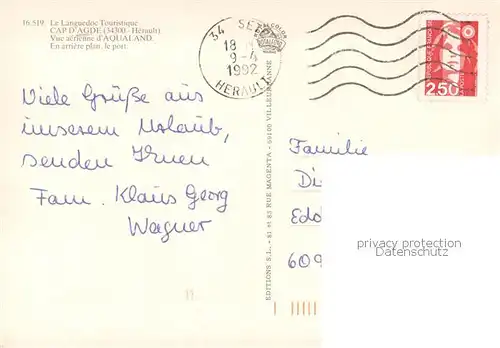 16.519 Le Languedoc Touristique
CAP D'AGDE (34300 - Hérault)
Vue aérienne d'AQUALAND.
En arrière plan, le port.
34
18
9-4
1992
HERAULT
2,50
Viele Grüße aus
unserem Urlaub,
senden Ihnen
Fam. Klaus Georg
Wagner
EDITIONS S.L. - 81 et 83 RUE MAGENTA - 69100 VILLEURBANNE
Familie
Di
Edo
609
privacy protection
Datenschutz